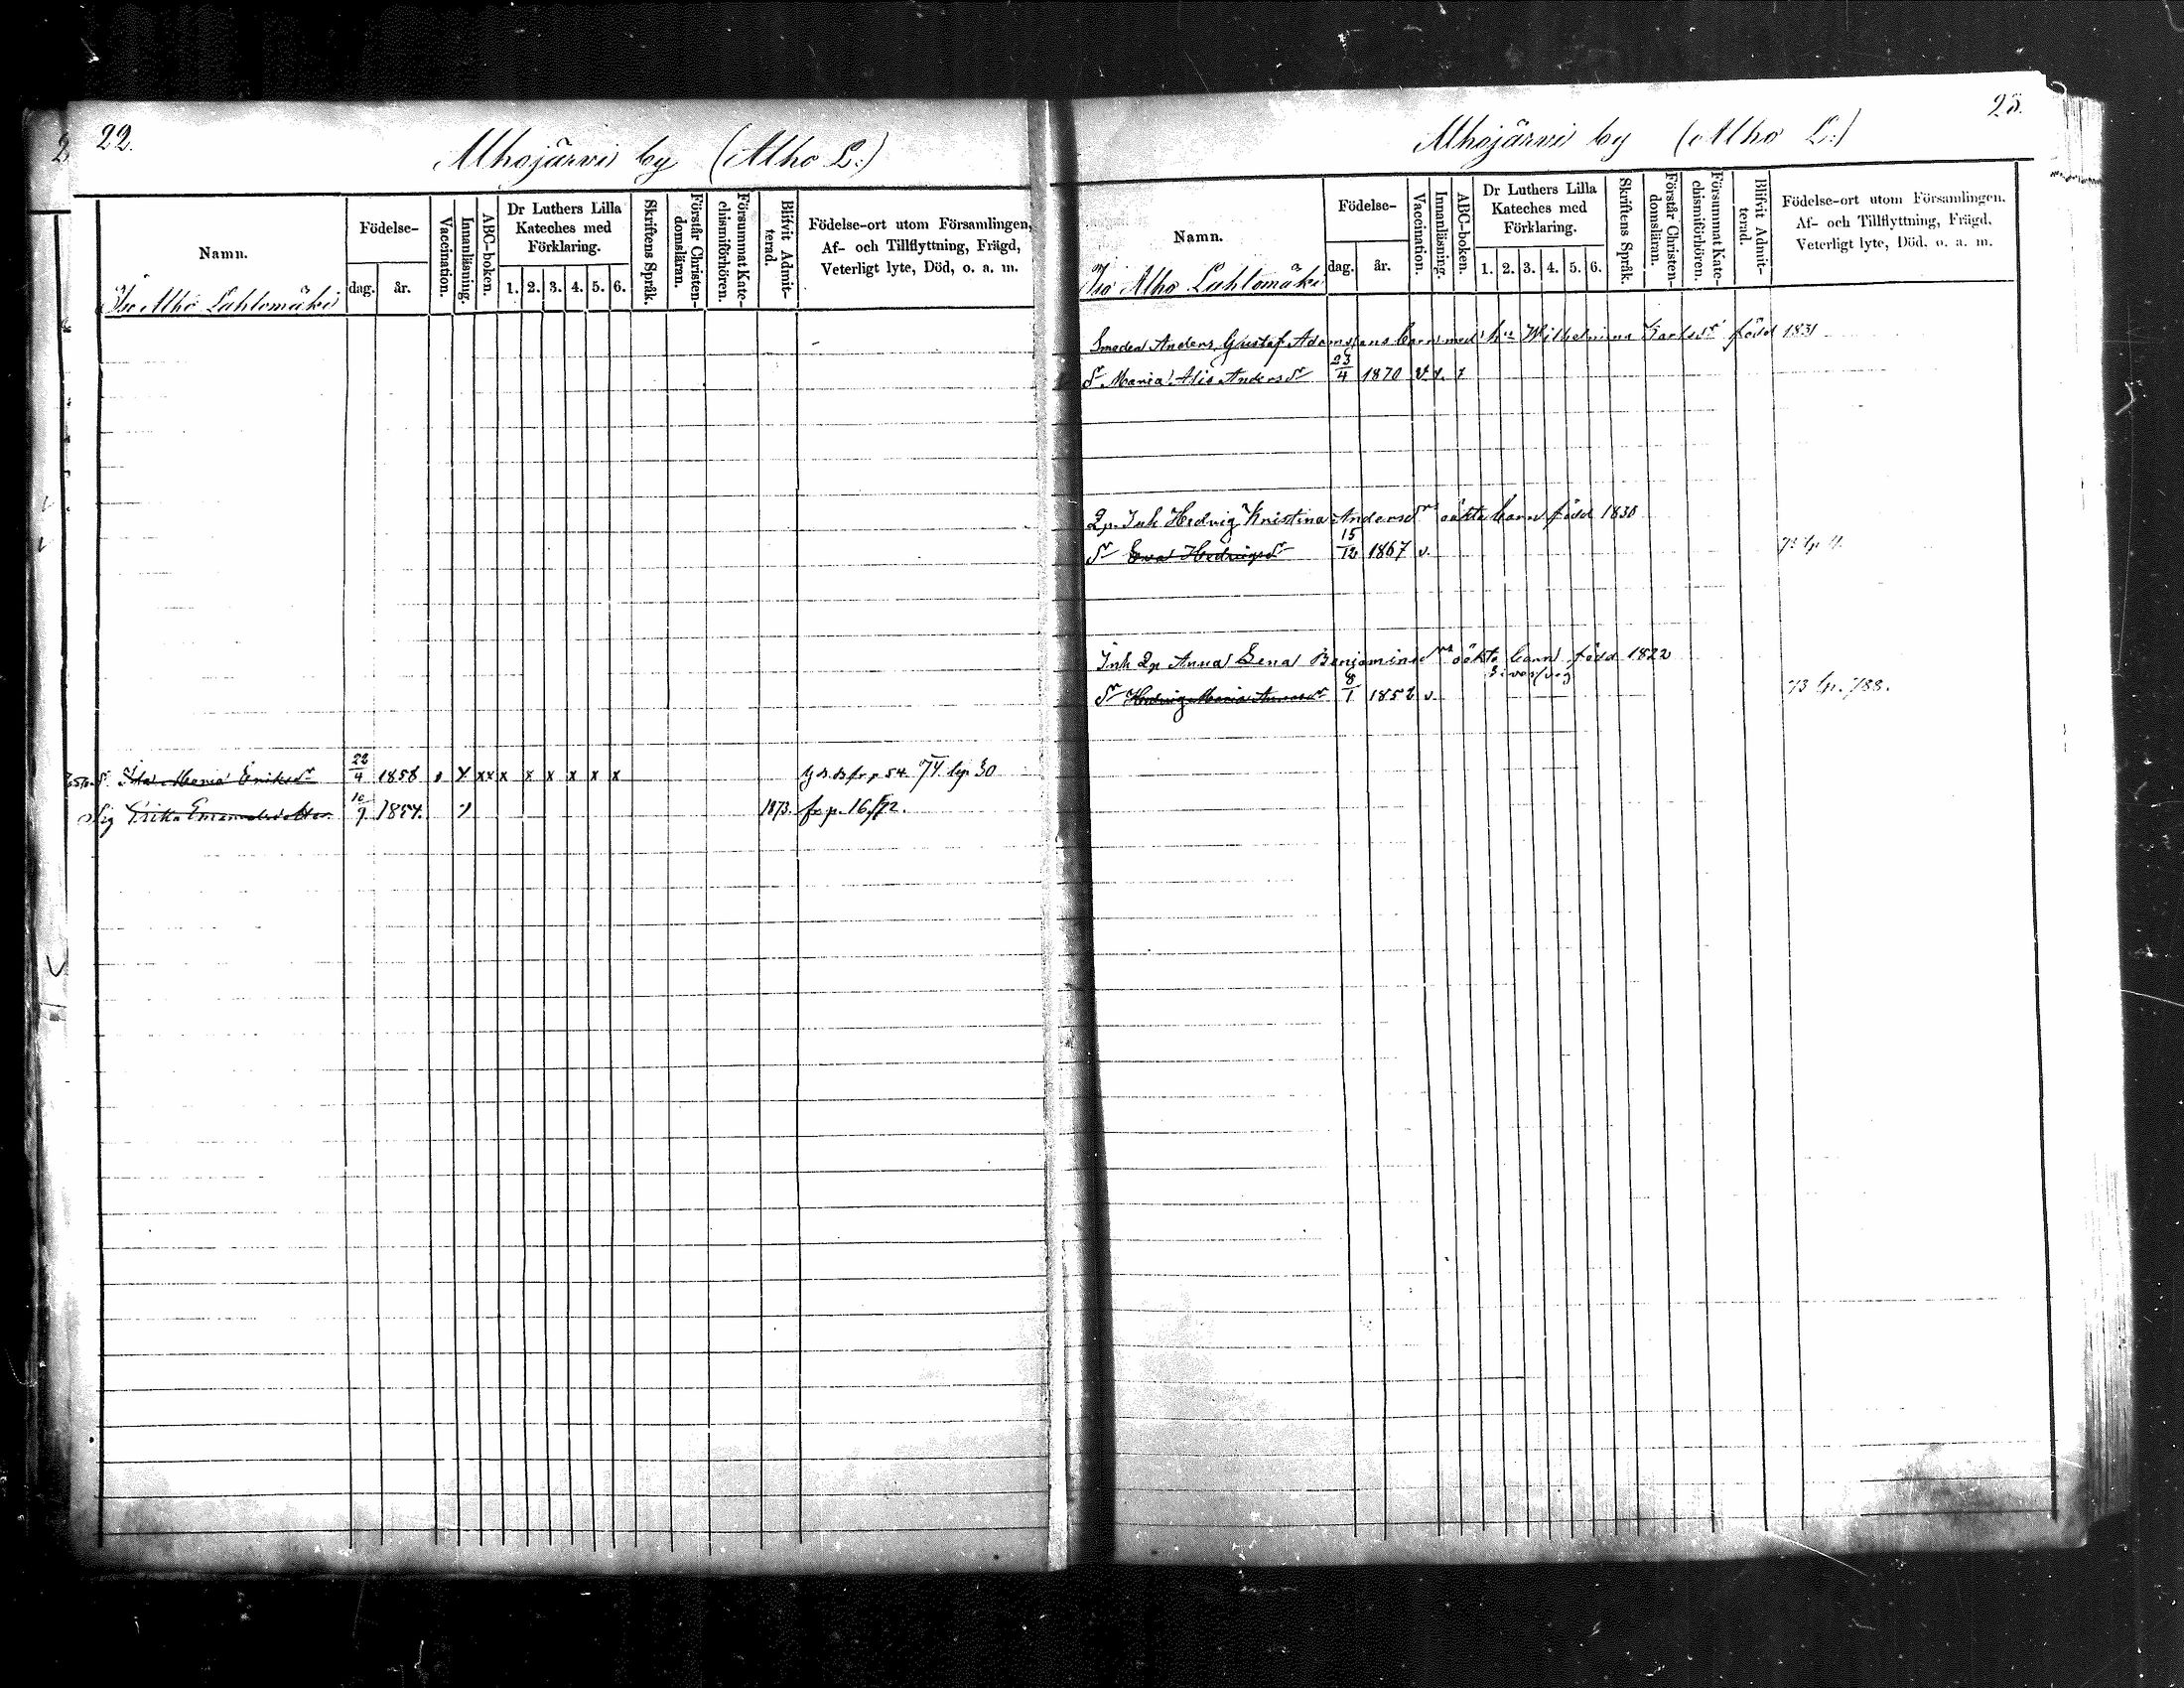 22.
Alhojärvi by (Alho L:)
Namn.
Födelse-
dag.
år.
Vaccination.
Innanläsning.
ABC-boken.
Dr Luthers Lilla
Kateches med
Förklaring.
1. 2. 3. 4. 5. 6.
Skriftens Språk.
Förstår Christen-
domsläran.
Försummat Kate-
chismiförhören.
Blifvit Admit-
terad.
Födelse-ort utom Församlingen,
Af- och Tillflyttning, Frägd,
Veterligt lyte, Död, o. a. m.
Iso Alho Lahtomäki
Maria Eriksdr 22/4 1858 x x x x x x x x 54. 74 30
Erika 10/9 1854. 1873. fr p. 16/72.
23.
Alhojärvi by (Alho L:)
Namn.
Födelse-
dag.
år.
Vaccination.
Innanläsning.
ABC-boken.
Dr Luthers Lilla
Kateches med
Förklaring.
1. 2. 3. 4. 5. 6.
Skriftens Språk.
Förstår Christen-
domsläran.
Försummat Kate-
chismiförhören.
Blifvit Admit-
terad.
Födelse-ort utom Församlingen,
Af- och Tillflyttning, Frägd,
Veterligt lyte, Död. o. a. m.
Iso Alho Lahtomäki
Smeden Anders Gustaf Adamssons barn med hu Wilhelmina Karlsdr född 1831
dr Maria Alis Andersdr 23/4 1870 v. x. x
Qp. Inh Hedvig Kristina Andersdrs oäkta barn född 1830
dr Eva Hedvigsdr 15/12 1867 v.
Inh Qp Anna Lena Benjaminsdrs oäkta barn född 1822
dr Hedvig Maria Annasdr 8/1 1858 v.
73 788.